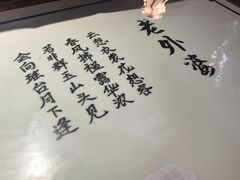 老外婆
云想衣裳花想容
春风拂槛露华浓
若非群玉山头见
会向瑶台月下逢